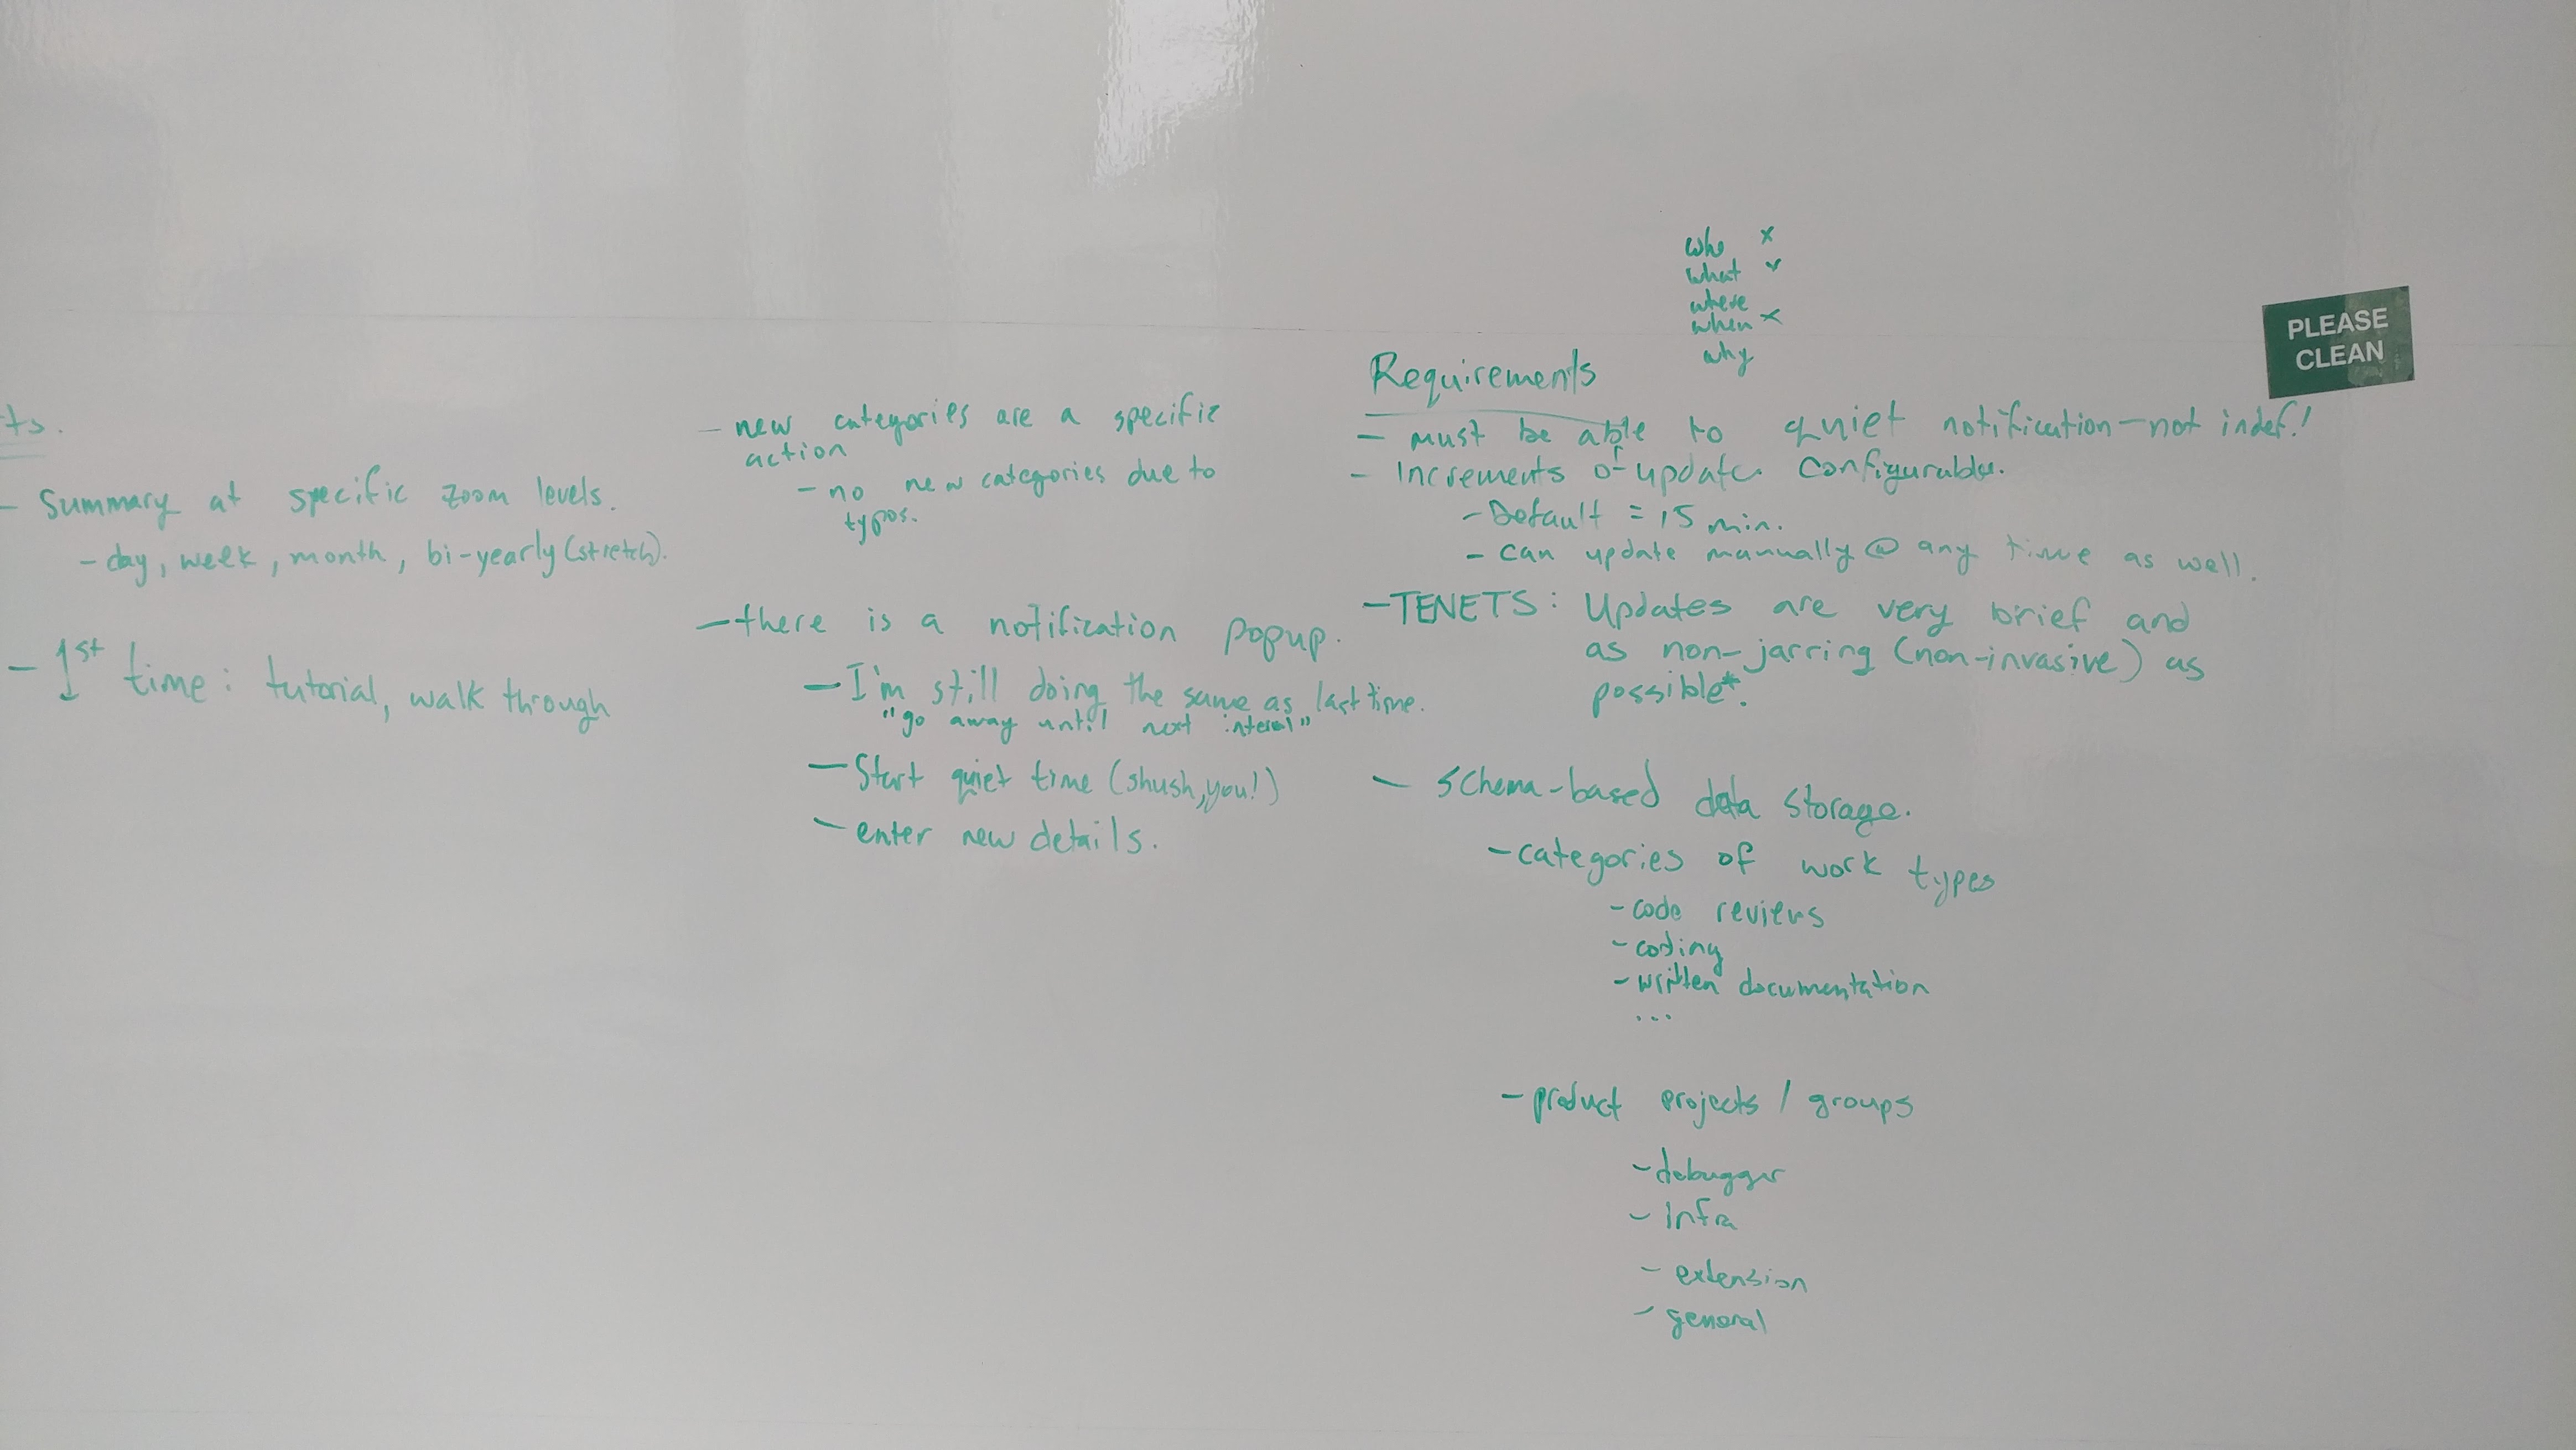 ts.
- Summary at specific zoom levels.
- day, week, month, bi-yearly (stretch).
- 1st time: tutorial, walk through
- new categories are a specific
action
- no new categories due to
typos.
- there is a notification popup.
- I'm still doing the same as last time.
"go away until next interal"
- Start quiet time (shush, you!)
- enter new details.
who x
what ✓
where
when x
why
Requirements
- must be able to quiet notification - not indef!
- Increments of update. Configurable.
- Default = 15 min.
- can update manually @ any time as well.
- TENETS: Updates are very brief and
as non-jarring (non-invasive) as
possible*.
- Schema-based data storage.
- categories of work types
- code reviews
- coding
- written documentation
...
- product projects / groups
- debugger
- infra
- extension
- general
PLEASE
CLEAN